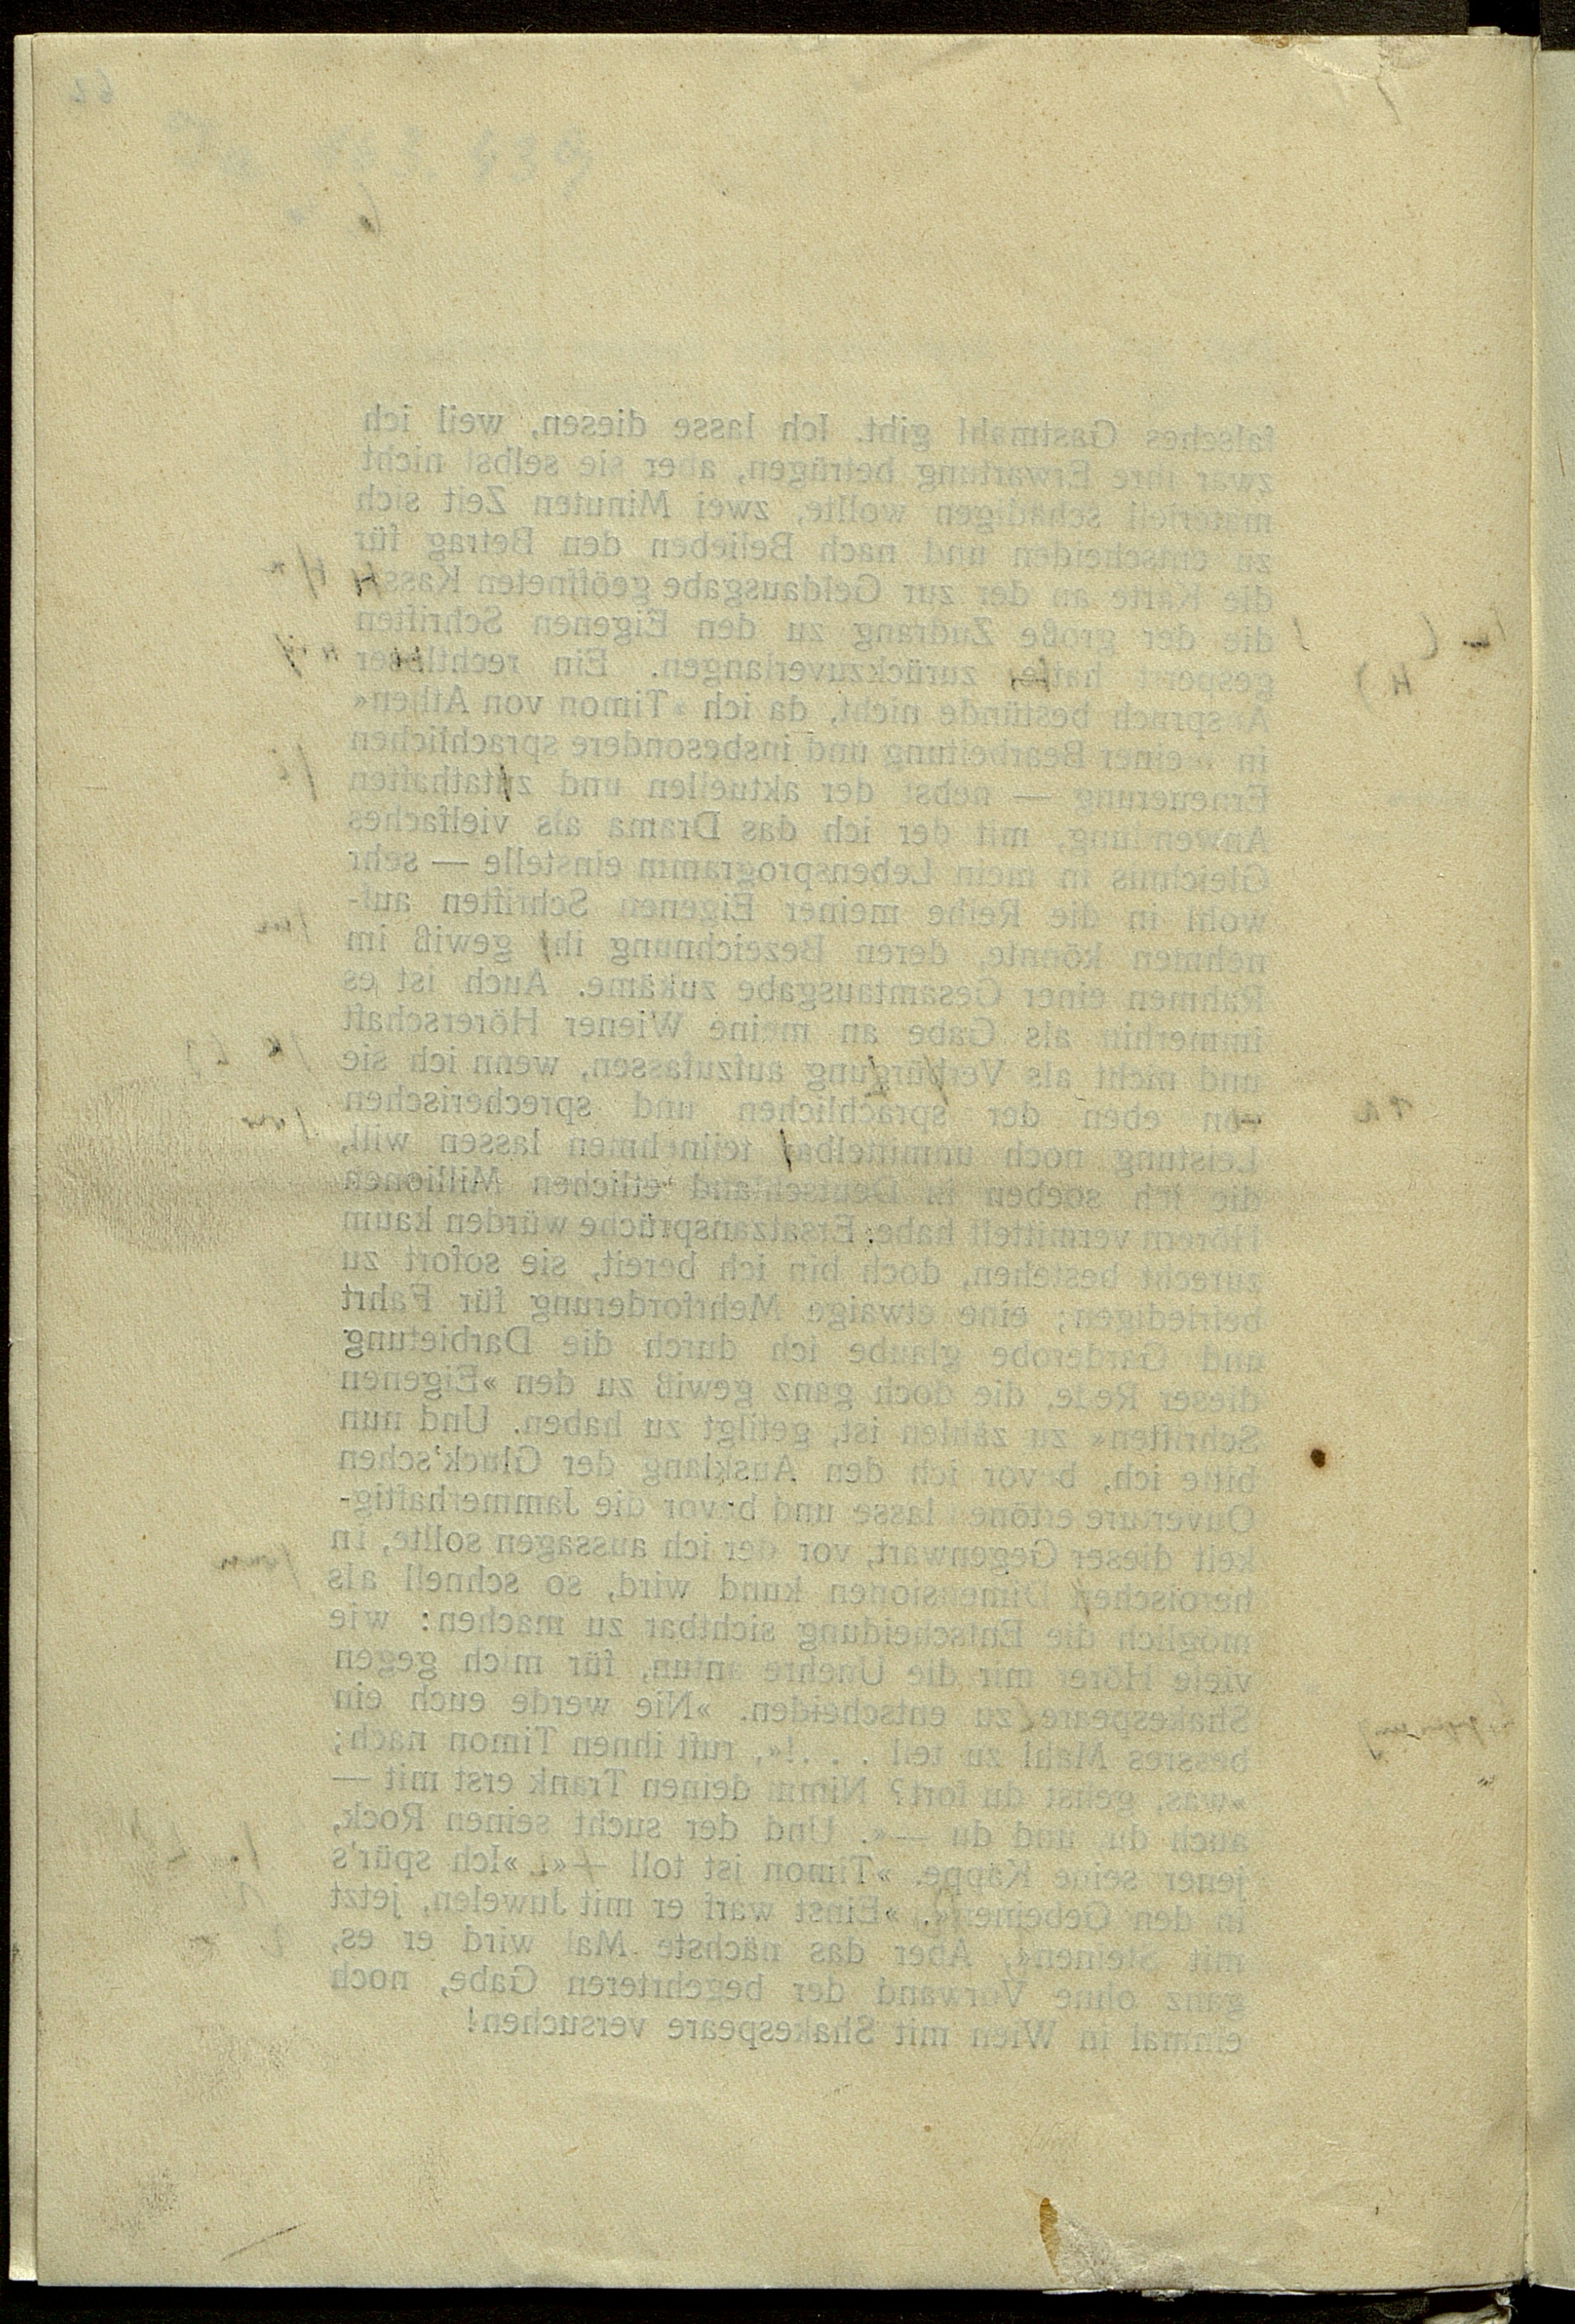 falsches Gastmahl gibt. Ich lasse diesen, weil ich
zwar ihre Erwartung betrügen, aber sie selbst nicht
materiell schädigen wollte, zwei Minuten Zeit sich
zu entscheiden und nach Belieben den Betrag für
die Karte an der zur Geldausgabe geöffneten
die der große Zudrang zu den Eigenen Schriften
gesperrt zurückzuverlangen. Ein
Anspruch bestünde nicht, da ich »Timon von Athen«
in meiner Bearbeitung und insbesondere sprachlichen
Erneuerung — nebst der aktuellen und
Anwendung, mit der ich das Drama als vielfaches
Gleichnis in mein Lebensprogramm einstelle — sehr
wohl in die Reihe meiner Eigenen Schriften auf-
nehmen könnte, deren Bezeichnung gewiß im
Rahmen einer Gesamtausgabe zukäme. Auch ist es
immerhin als Gabe an meine Wiener Hörerschaft
und nicht als aufzufassen, wenn ich sie
von eben der sprachlichen und sprecherischen
Leistung noch teilnehmen lassen will,
die ich soeben in Deutschland etlichen Millionen
Hörern vermittelt habe; Ersatzansprüche würden kaum
zurecht bestehen, doch bin ich bereit, sie sofort zu
befriedigen; eine etwaige Mehrforderung für Fahrt
und Garderobe glaube ich durch die Darbietung
dieser Rede, die doch ganz gewiß zu den »Eigenen
Schriften« zu zählen ist, getilgt zu haben. Und nun
bitte ich, bevor ich den Ausklang der Gluck'schen
Ouverture ertönen lasse und bevor die Jammerhaftig-
keit dieser Gegenwart, vor der ich aussagen sollte, in
Dimensionen kund wird, so schnell als
möglich die Entscheidung sichtbar zu machen: wie
viele Hörer mir die Unehre antun, für mich gegen
Shakespeare zu entscheiden. »Nie werde euch ein
bessres Mahl zu teil . . .!«, ruft ihnen Timon nach;
»was, gehst du fort? Nimm deinen Trank erst mit —
auch du, und du —«. Und der sucht seinen Rock,
jener seine Kappe. »Timon ist toll »Ich spür's
in den Gebeinen«. »Einst warf er mit Juwelen, jetzt
mit Steinen«. Aber das nächste Mal wird er es,
ganz ohne Vorwand der begehrteren Gabe, noch
einmal in Wien mit Shakespeare versuchen!